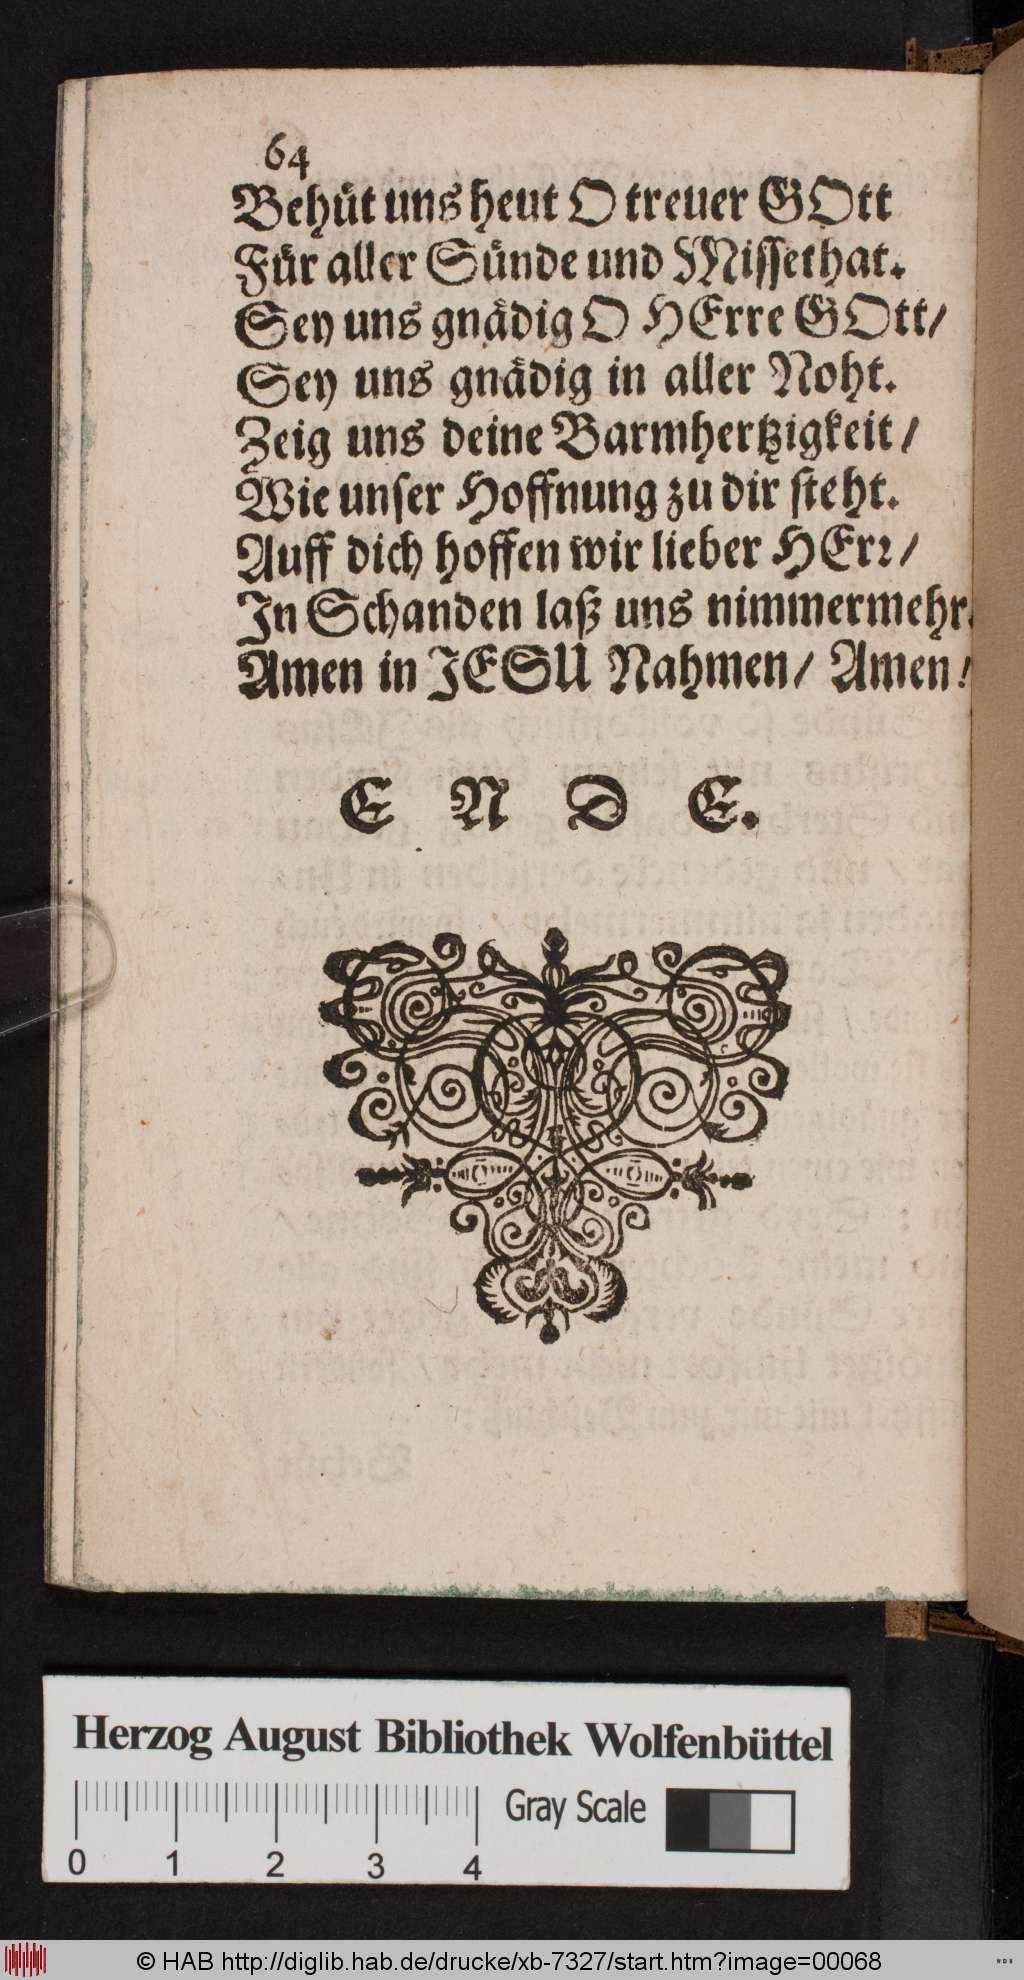 64
Behüt uns heut O treuer GOtt
Für aller Sünde und Missethat.
Sey uns gnädig O HErre GOtt/
Sey uns gnädig in aller Noht.
Zeig uns deine Barmhertzigkeit/
Wie unser Hoffnung zu dir steht.
Auff dich hoffen wir lieber HErr/
In Schanden laß uns nimmermehr.
Amen in JESU Nahmen/ Amen!
E N D E.
Herzog August Bibliothek Wolfenbüttel
Gray Scale
0 1 2 3 4
© HAB http://diglib.hab.de/drucke/xb-7327/start.htm?image=00068